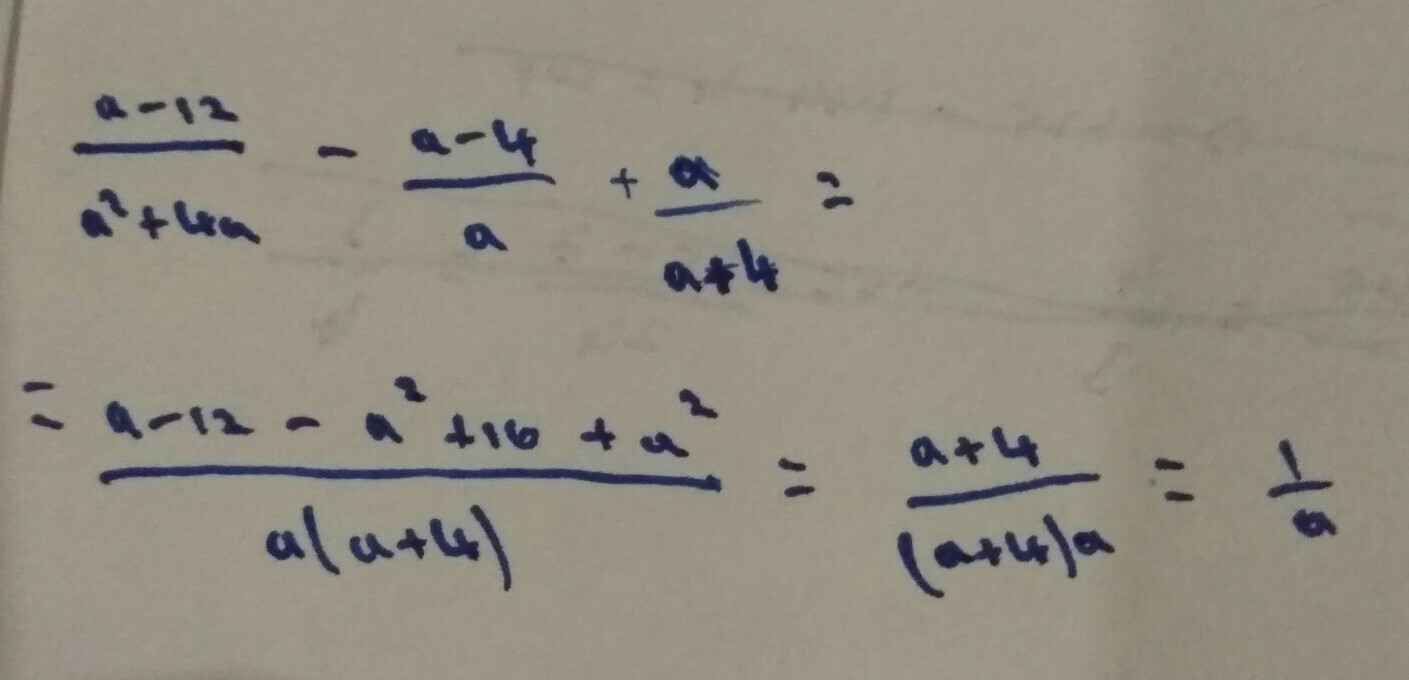 (a-12)/(a²+4a) - (a-4)/a + a/(a+4) =
= (a-12-a²+16+a²)/(a(a+4)) = (a+4)/((a+4)a) = 1/a